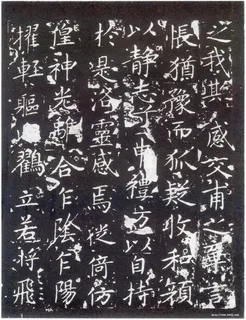 之我欺感交甫之棄言
悵猶豫而狐疑收和顏
以静志兮申禮方以自持
於是洛靈感焉徙倚仿
徨神光離合乍陰乍陽
擢輕軀鶴立若將飛